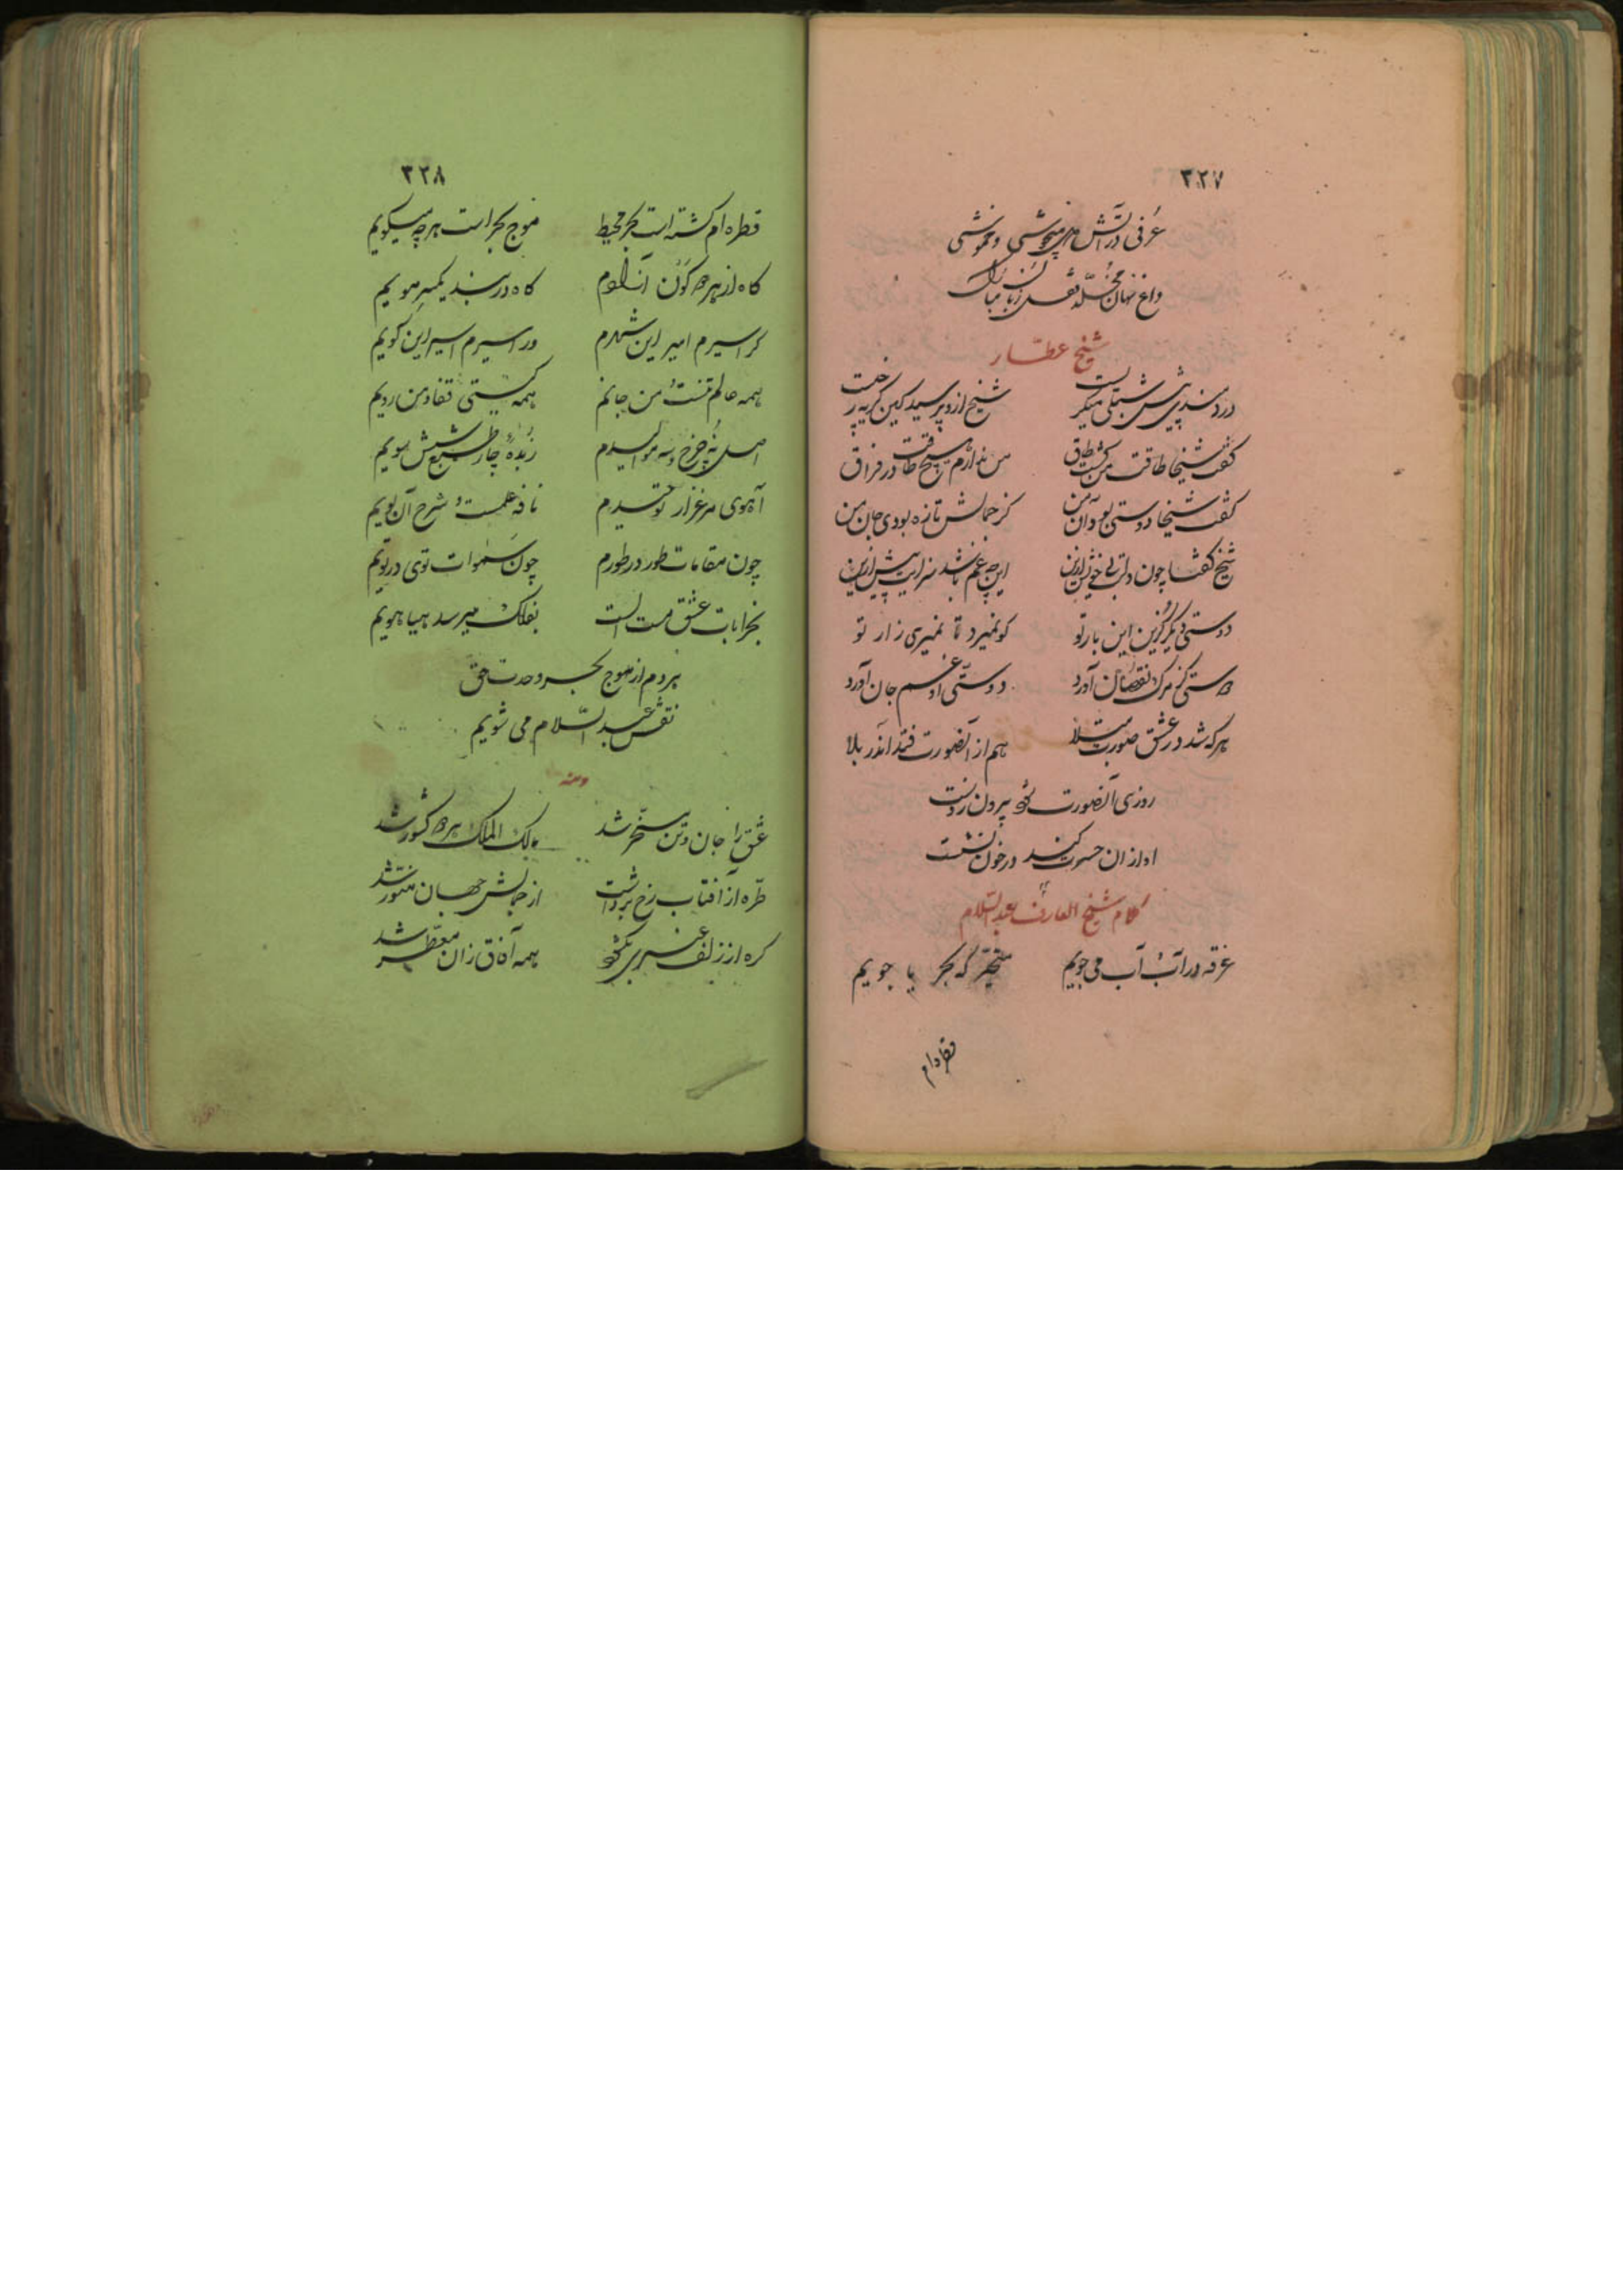 ۳۲۷
عرفی در آتش میجوشی و خموشی
داغ نهان
شیخ عطّار
دردمندی پیش شبلی میگریست شیخ ازو پرسید کین گریه ز چیست
گفت شیخا طاقت من گشت طاق من ندارم هیچ طاقت در فراق
گفت شیخا دوستی بود آن من کز جمالش تازه بودی جان من
شیخ گفتا چون دلت بیخویش ازین این چه غم باشد سزایت بیش ازین
دوستی دیگر گزین این بار تو کو نمیرد تا نمیری زار تو
دوستی کز مرگ نقصان آورد دوستی او غم جان آورد
هر که شد در عشق صورت مبتلا هم از آنصورت فتد اندر بلا
روزی آنصورت شود بیرون ز دست
او از ان حسرت کند در خون نشست
کلام شیخ العارف عبد السّلام
غرقه در آب و آب می جویم متحیّر که بحر یا جویم
قطره ام
۳۲۸
قطره ام گشته است بحر محیط موج بحر است هر چه میگویم
گاه از هر دو کون آزادم گاه در بند یکسر مویم
گر اسیرم امیر این شهرم ور اسیرم اسیر این کویم
همه عالم تنست و من جانم همه گیتی قفا و من رویم
اصل نه چرخ و سه موالیدم زبدهٔ چار طبع و شش سویم
آهوی مرغزار توحیدم نافه علمست و شرح آن بویم
چون مقامات طور در طورم چون سموات توی در تویم
بخرابات عشق مست الست بفلک میرسد هیاهویم
هر دم از موج بحر وحدت حق
نقش عبد السّلام می شویم
ومنه
عشق را جان و تن مسخّر شد مالک الملک هر دو کشور شد
طرّه از آفتاب رخ برداشت از جمالش جهان منوّر شد
گره از زلف عنبری بگشود همه آفاق زان معطّر شد